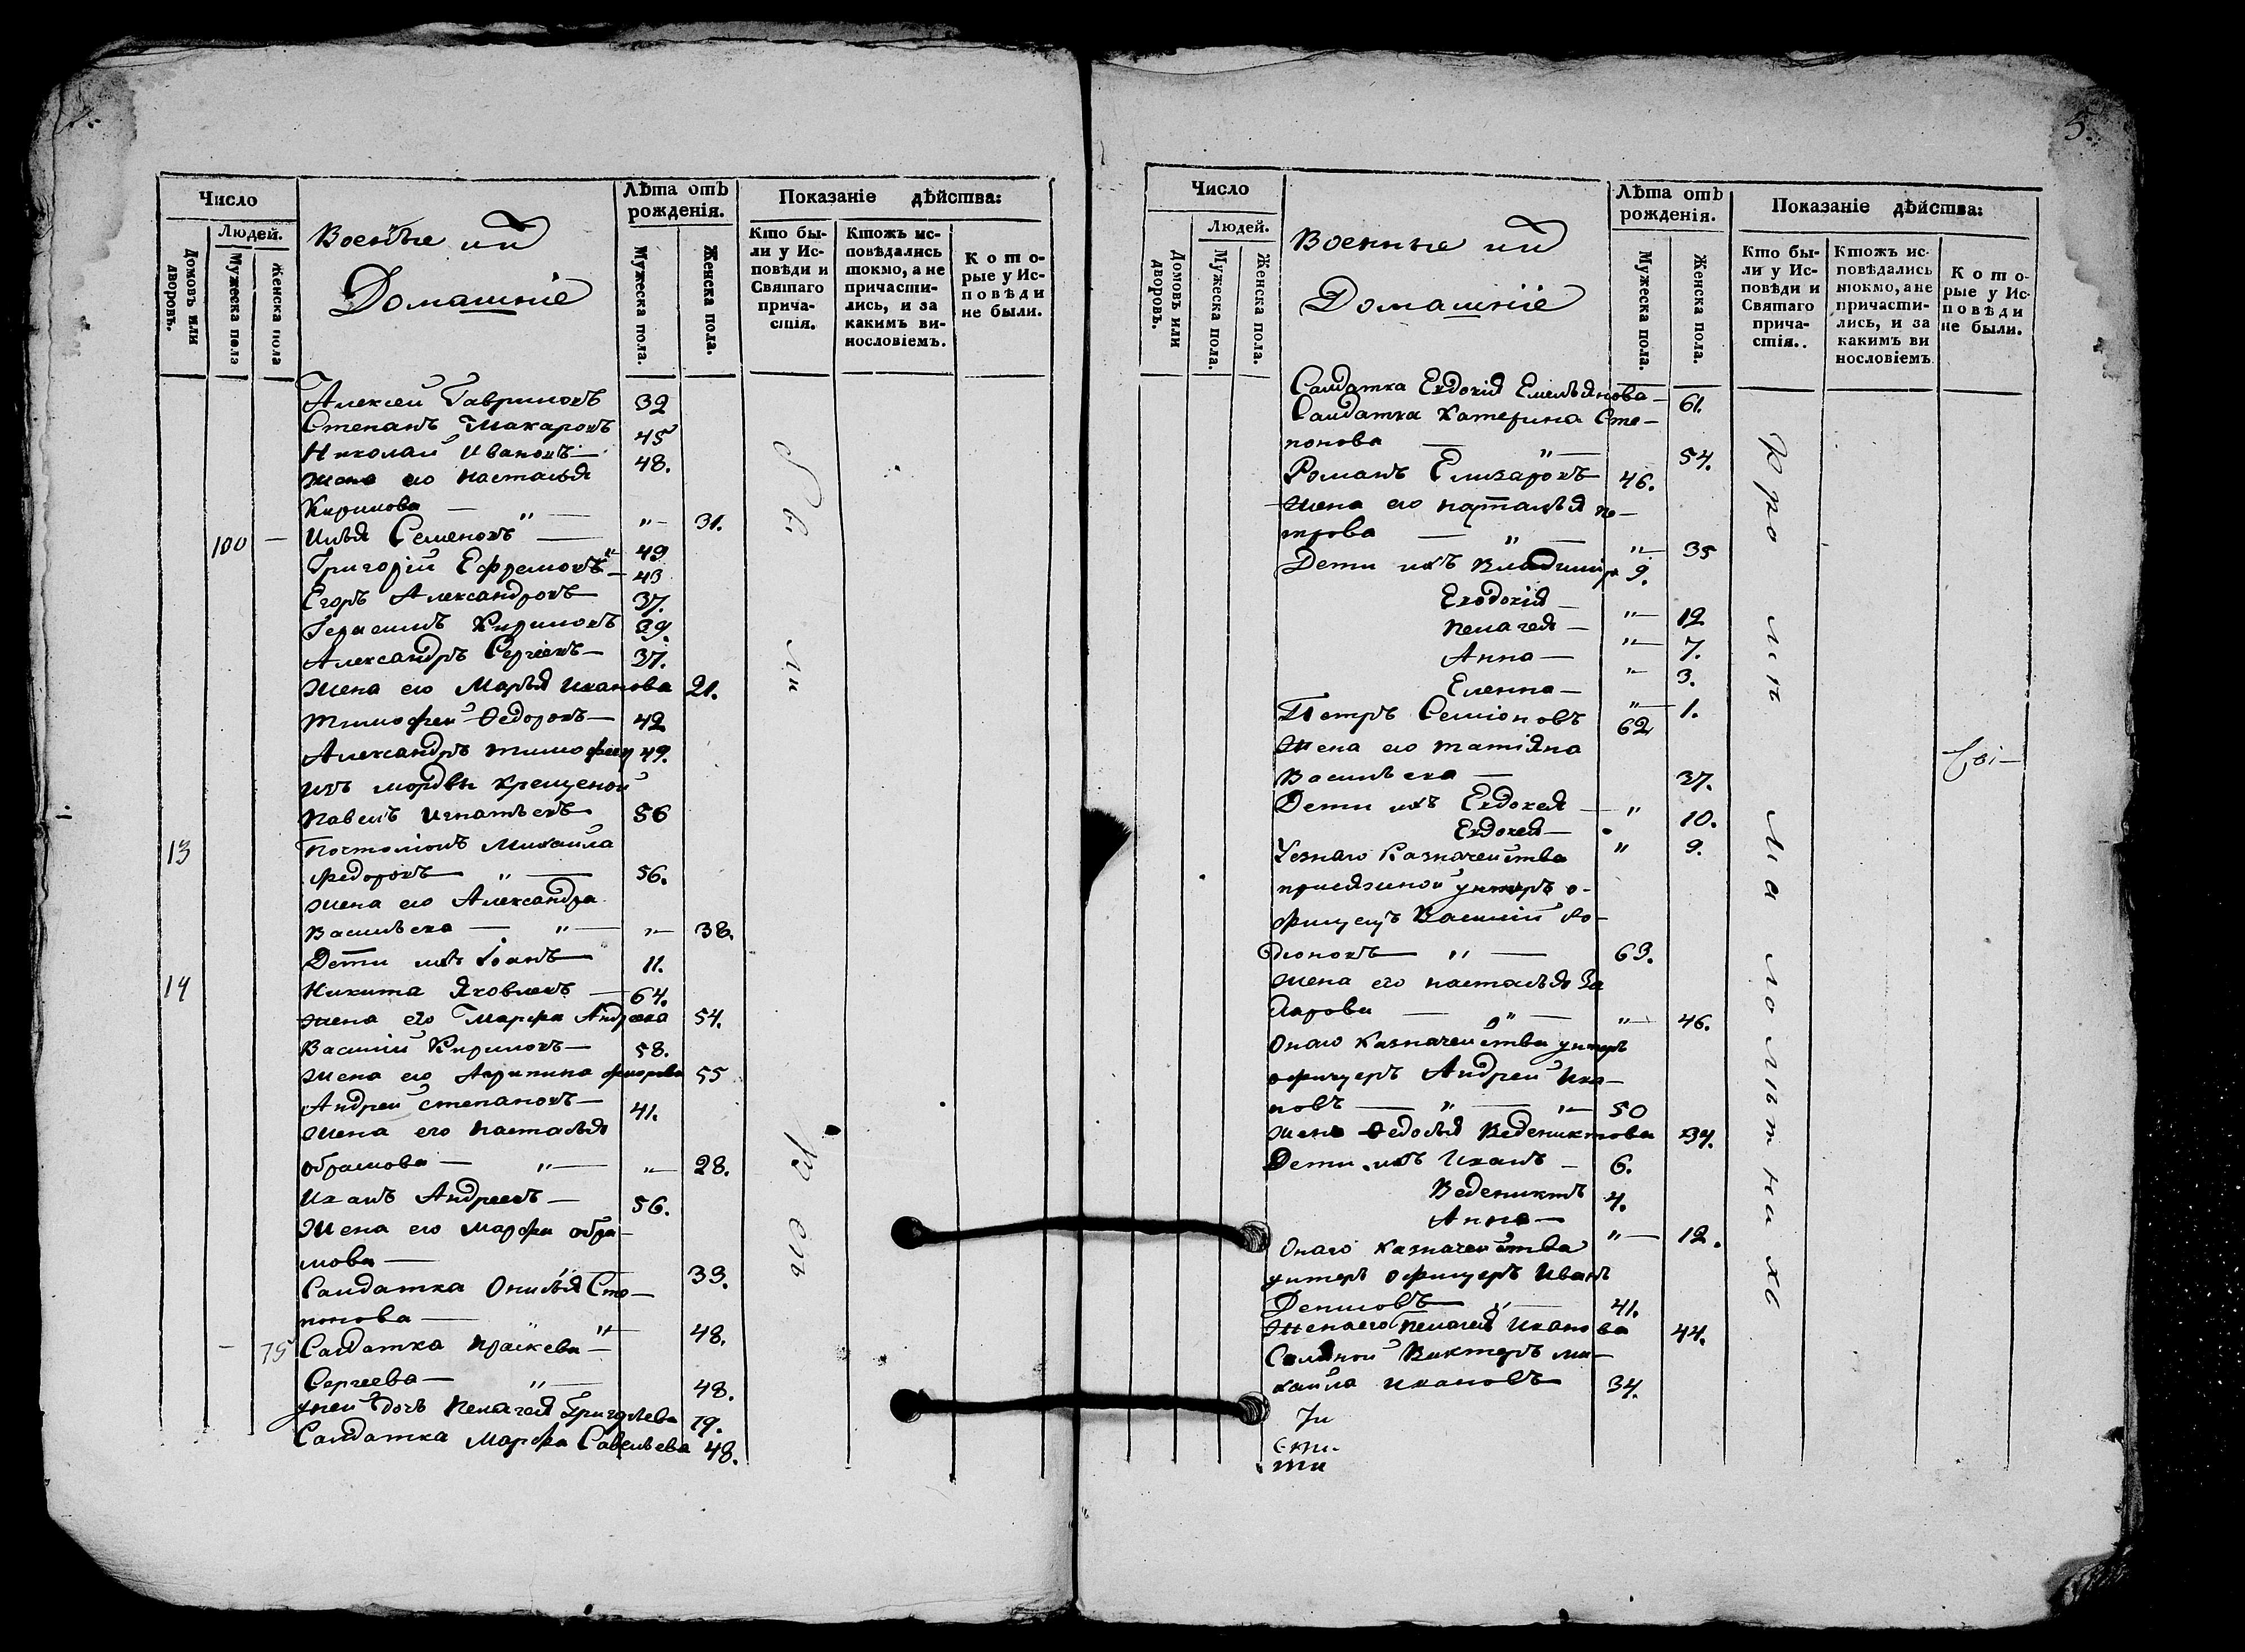 5.
Число
Лѣта отъ рожденія.
Показаніе дѣйства:
Людей.
Домовъ или дворовъ.
Мужеска пола
Женска пола
Военные ихъ
Домашніе
Мужеска пола.
Женска пола.
Кто были у Исповѣди и Святаго причастія.
Ктожъ исповѣдались токмо, а не причастились, и за какимъ винословіемъ.
Которые у Исповѣди не были.
Алексей Гавриловъ 32
Степанъ Макаровъ 45
Николай Ивановъ 48.
жена его Настасья
Кирилова " — 31.
100 — Илья Семеновъ 49
Григорій Ефремовъ 43
Егоръ Александровъ 37.
Герасимъ Кириловъ 39.
Александръ Сергіевъ 37.
жена его Марья Иванова 21.
Тимофей Ѳедоровъ 42
Александръ Тимофеи 49.
изъ мордвы крещеной
Павелъ Игнатьевъ 56
13 Почтоліонъ Михайла
Федоровъ " 56.
жена его Александра
Васильева " — 38.
Дети ихъ Іоанъ 11.
14 Никита Яковлевъ 64.
жена его Марфа Андреева 54.
Василій Кириловъ 58.
жена его Агрипина Фиорова 55
Андрей Степановъ 41.
жена его Настасья
Обрамова — " — 28.
Иванъ Андреевъ 56.
Жена его Марфа Обра-
мова — 33.
Салдатка Онисья Сте-
понова — 48.
— 75 Салдатка Праскева
Сергеева — " 48.
у ней дочь Пелагея Григорьева 19.
Салдатка Марфа Савельева 48.
Число
Лѣта отъ рожденія.
Показаніе дѣйства:
Людей.
Домовъ или дворовъ.
Мужеска пола.
Женска пола.
Военные ихъ
Домашніе
Мужеска пола.
Женска пола.
Кто были у Исповѣди и Святаго причастія..
Ктожъ исповѣдались токмо, а не причастились, и за какимъ винословіемъ
Которые у Исповѣди не были.
Салдатка Евдокія Емельянова — 61.
Салдатка Катерина Сте-
понова — " — 54.
Романъ Елизаровъ 46.
жена его Наталья Пе-
трова — " — 35
Дети ихъ Владимиръ 9.
Евдокія — " 12
Пелагея — " 7.
Анна — " 3.
Еленна — " 1.
Петръ Семіоновъ 62
жена его Татіяна
Васильева — 37.
Дети ихъ Евдокея — " 10.
Евдокея — " 9.
Уезнаго Казначейства
присяжной унтеръ о-
фицеръ Василій Ро-
діоновъ — " — 63.
жена его Настасья За
харова — " — 46.
Онаго Казначейства унтеръ
офицеръ Андрей Ива-
новъ — " — 50
жена Ѳедосья Ведениктова 34.
Дети ихъ Иванъ — 6.
Ведениктъ 4.
Анна — " 12.
Онаго Казначейства
унтеръ офицеръ Иванъ
Денисовъ " — 41.
Жена его Пелагея Иванова 44.
Соляной Вахтеръ Ми-
хайла Ивановъ 34.